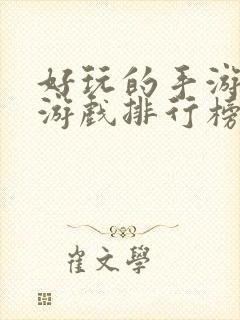 好玩的手游
游戏排行榜
崔文學